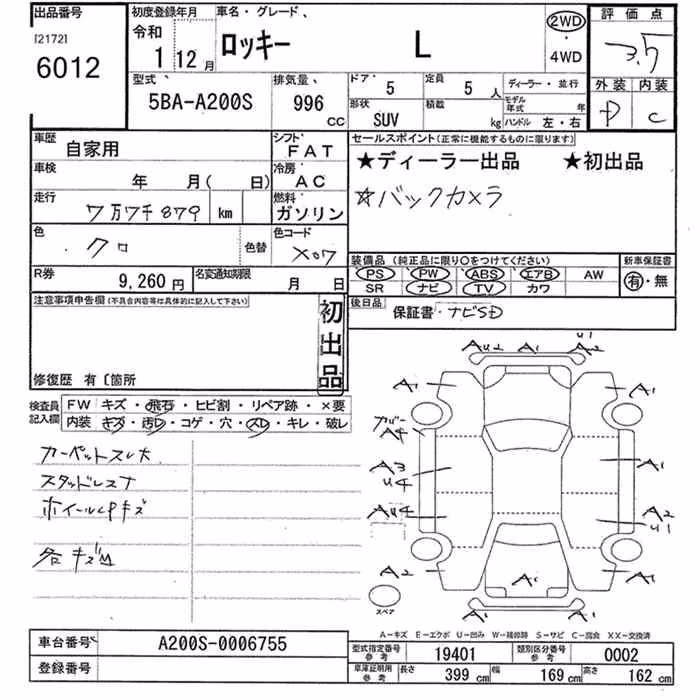 出品番号
[2172]
6012
初度登録年月
令和
1 12月
車名・グレード
ロッキー L
2WD
・
4WD
評価点
3.5
外装 内装
D C
型式
5BA-A200S
排気量
996
CC
ドア
5
定員
5 人
形状
SUV
積載
kg
ディーラー・並行
モデル年式 年
ハンドル 左・右
車歴
自家用
シフト
FAT
車検
年 月( 日)
冷房
AC
走行
7万7千879 km
燃料
ガソリン
色
クロ
色替
色コード
X07
R券
9,260円
名変通知期限
月 日
セールスポイント(正常に機能するものに限ります)
★ディーラー出品 ★初出品
☆バックカメラ
装備品(純正品に限り○をつけてください)
PS PW ABS エアB AW
SR ナビ TV カワ
新車保証書
有・無
後日品
保証書・ナビSD
注意事項申告欄(不具合内容等は具体的に記入して下さい)
初出品
修復歴 有〔箇所
検査員記入欄
FW キズ・飛石・ヒビ割・リペア跡・×要
内装 キズ・汚レ・コゲ・穴・スレ・キレ・破レ
カーペットスレ大
スタッドレス
ホイールCPキズ
各キズ凹
AU2 A1 U1
A2
A1 A1
カバー
A4
A3
U4
A1
AU4
A2
U1
A2 A1 A1
スペア
A-キズ E-エクボ U-凹み W-補修跡 S-サビ C-腐食 XX-交換済
車台番号
A200S-0006755
登録番号
型式指定番号
参考
19401
類別区分番号
参考
0002
車庫証明用
参考
長さ
399 cm
幅
169 cm
高さ
162 cm